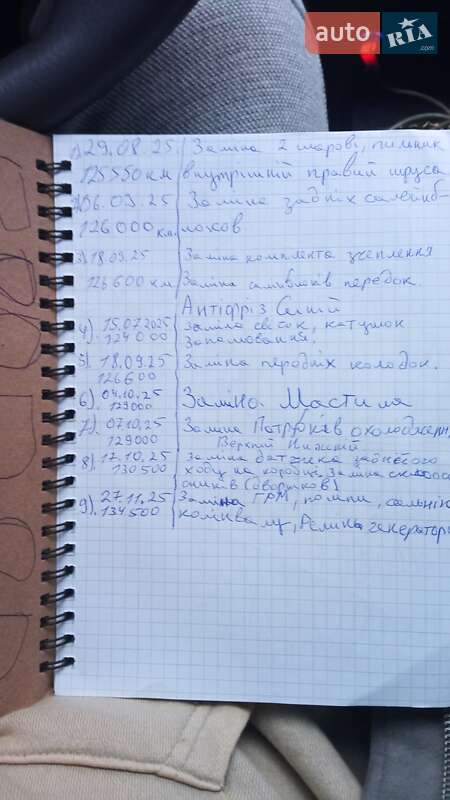 auto RIA .com
1) 29.08.25 Заміна 2 шарові, пильник
125550 км внутрішній правий шруса
2) 06.09.25 Заміна задніх салейнб-
126000 км. локов
3) 18.09.25 Заміна комплекта зчеплення
126600 км Заміна сальників передок.
Антифріз Синій
4) 15.07.2025 Заміна свічок, катушок
124000 запалювання.
5) 18.09.25 Заміна передніх колодок.
126600
6) 04.10.25 Заміна Мастила
129000
7) 07.10.25 Заміна Патрубків охолодження
129000 Верхній Нижній
8) 17.10.25 заміна датчика заднього
130500 ходу на коробці Заміна
(дворніков)
9) 27.11.25 Заміна ГРМ, помпи, сальнік
134500 колінвалу, Реміня генератора